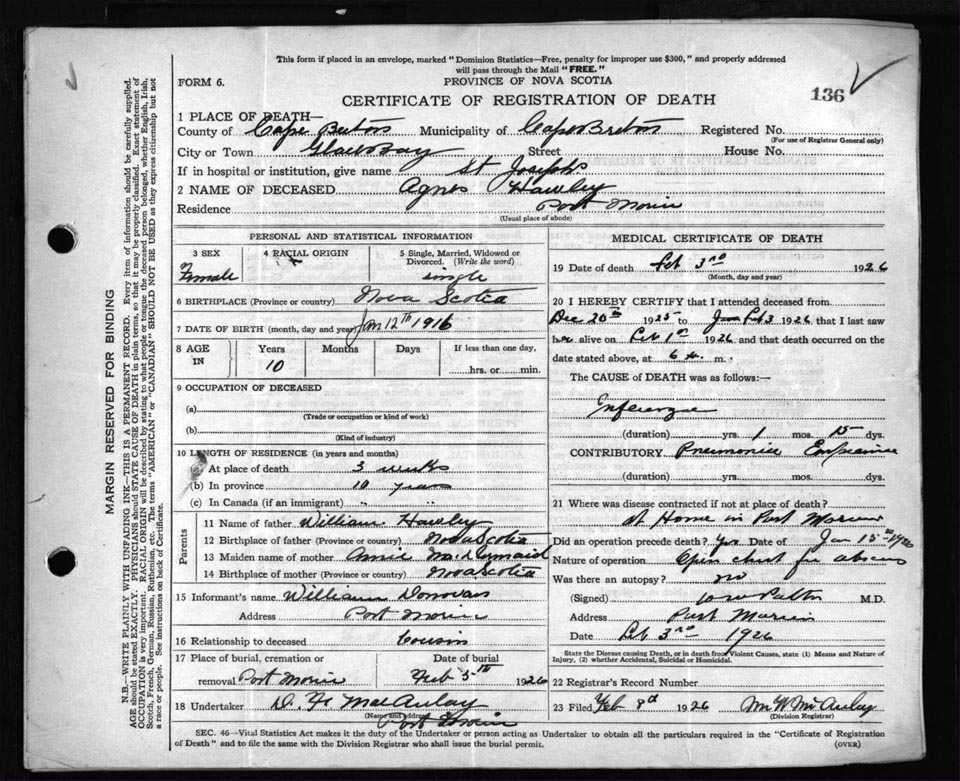 This form if placed in an envelope, marked "Dominion Statistics—Free, penalty for improper use $300," and properly addressed
will pass through the Mail "FREE."
FORM 6.
PROVINCE OF NOVA SCOTIA
136
CERTIFICATE OF REGISTRATION OF DEATH
1 PLACE OF DEATH—
County of Cape Breton Municipality of Cape Breton Registered No.
(For use of Registrar General only)
City or Town Glace Bay Street House No.
If in hospital or institution, give name St Josephs
2 NAME OF DECEASED Agnes Hawley
Residence Port Morien
(Usual place of abode)
PERSONAL AND STATISTICAL INFORMATION
3 SEX
Female
4 RACIAL ORIGIN
5 Single, Married, Widowed or
Divorced. (Write the word)
single
6 BIRTHPLACE (Province or country) Nova Scotia
7 DATE OF BIRTH (month, day and year) Jan 12th 1916
8 AGE
IN
Years
10
Months
Days
If less than one day,
hrs. or min.
9 OCCUPATION OF DECEASED
(a)
(Trade or occupation or kind of work)
(b)
(Kind of industry)
10 LENGTH OF RESIDENCE (in years and months)
(a) At place of death 3 weeks
(b) In province 10 years
(c) In Canada (if an immigrant) " "
Parents
11 Name of father William Hawley
12 Birthplace of father (Province or country) Nova Scotia
13 Maiden name of mother Annie
14 Birthplace of mother (Province or country) Nova Scotia
15 Informant's name William Donovan
Address Port Morien
16 Relationship to deceased Cousin
17 Place of burial, cremation or
removal Port Morien
Date of burial
Feb 5th 1926
18 Undertaker D. MacAulay
(Name and address)
Port Morien
MEDICAL CERTIFICATE OF DEATH
19 Date of death Feb 3rd 1926
(Month, day and year)
20 I HEREBY CERTIFY that I attended deceased from
Dec 20th 1925 to Feb 3 1926, that I last saw
her alive on Feb 1st 1926 and that death occurred on the
date stated above, at 6 a. m.
The CAUSE of DEATH was as follows:—
Influenza
(duration) yrs. 1 mos. 15 dys.
CONTRIBUTORY Pneumonia Empyema
(duration) yrs. mos. dys.
21 Where was disease contracted if not at place of death?
At Home in Port Morien
Did an operation precede death? Yes Date of Jan 15th 1926
Nature of operation Open chest for abscess
Was there an autopsy? no
(Signed) M.D.
Address Port Morien
Date Feb 3rd 1926
State the Disease causing Death, or in death from Violent Causes, state (1) Means and Nature of
Injury, (2) whether Accidental, Suicidal or Homicidal.
22 Registrar's Record Number
23 Filed Feb 8th 1926 McAulay
(Division Registrar)
SEC. 46—Vital Statistics Act makes it the duty of the Undertaker or person acting as Undertaker to obtain all the particulars required in the "Certificate of Registration
of Death" and to file the same with the Division Registrar who shall issue the burial permit.
(OVER)
MARGIN RESERVED FOR BINDING
N.B.—WRITE PLAINLY WITH UNFADING INK—THIS IS A PERMANENT RECORD. Every item of information should be carefully supplied.
AGE should be stated EXACTLY. PHYSICIANS should STATE CAUSE OF DEATH in plain terms, so that it may be properly classified. Exact statement of
OCCUPATION is very important. RACIAL ORIGIN will be described by stating to what people or tongue the deceased person belonged, whether English, Irish,
Scotch, French, German, Russian, Ruthenian, etc. The terms "AMERICAN" or "CANADIAN" SHOULD NOT BE USED as they express citizenship but not
a race or people. See instructions on back of Certificate.